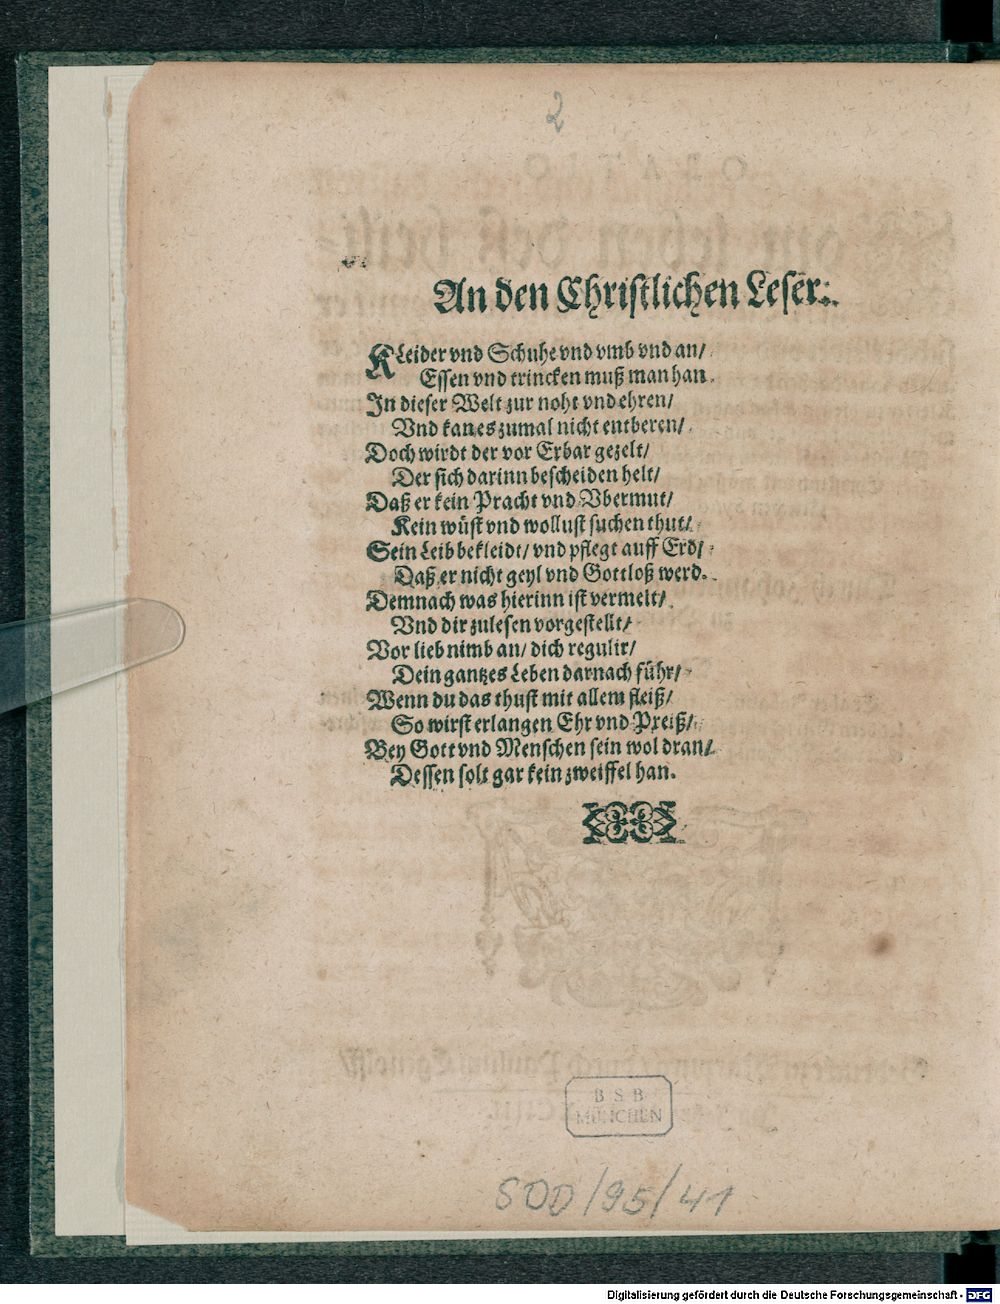 2
An den Christlichen Leser:.
KLeider vnd Schuhe vnd vmb vnd an/
Essen vnd trincken muß man han.
In dieser Welt zur noht vnd ehren/
Vnd kan es zumal nicht entberen/
Doch wirdt der vor Erbar gezelt/
Der sich darinn bescheiden helt/
Daß er kein Pracht vnd Vbermut/
Kein wüst vnd wollust suchen thut/
Sein Leib bekleidt/ vnd pflegt auff Erd/
Daß er nicht geyl vnd Gottloß werd.
Demnach was hierinn ist vermelt/
Vnd dir zulesen vorgestellt/
Vor lieb nimb an/ dich regulir/
Dein gantzes Leben darnach führ/
Wenn du das thust mit allem fleiß/
So wirst erlangen Ehr vnd Preiß/
Bey Gott vnd Menschen sein wol dran/
Dessen solt gar kein zweiffel han.
B S B
MÜNCHEN
500/95/41
Digitalisierung gefördert durch die Deutsche Forschungsgemeinschaft - DFG